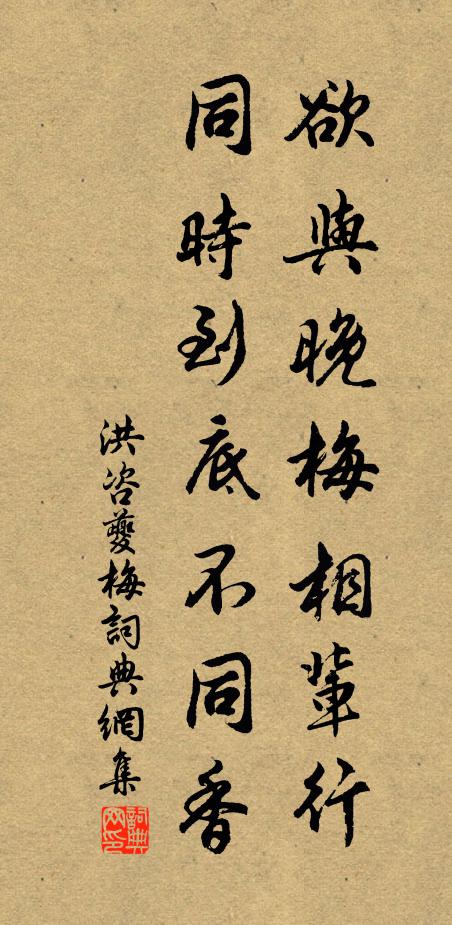 欲與晚梅相輩行
同時到底不同香
洪咨夔梅詞典網集
詞典網印